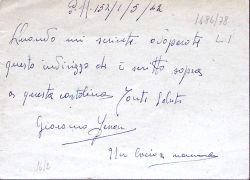 152/1/5/42
1686/78
Quando mi scrivete adoperate
questo indirizzo che è scritto sopra
a questa cartolina Tanti Saluti
Giacomo
16/2